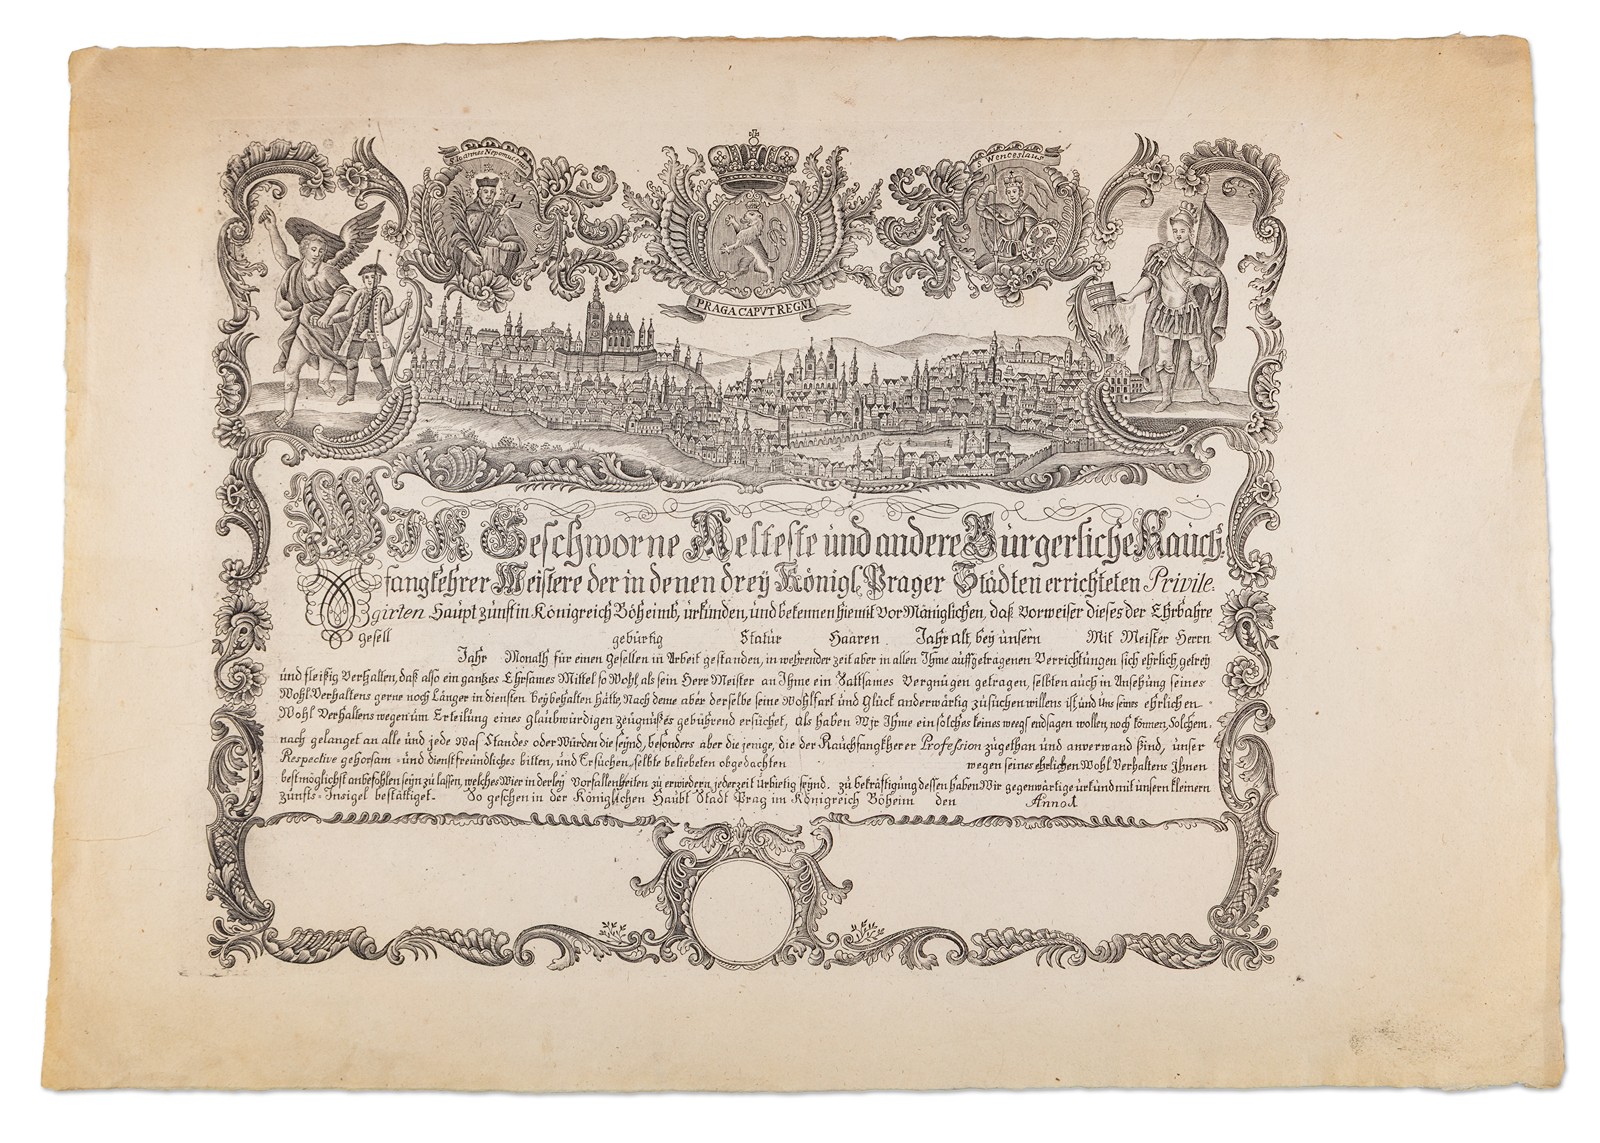 S. Joannes Nepomucen
S. Wenceslaus
PRAGA CAPVT REGNI
WIR Geschworne Aelteste und andere Bürgerliche Rauch-
fangkehrer Meistere der in denen dreÿ Königl. Prager Städten errichteten Privile-
girten Haupt zunft in Königreich Böheimb, urkunden, und bekennen hiemit Vor Mäniglichen, daß Vorweiser dieses der Ehrbahre
gesell gebürtig Statur Haaren Jahr alt, beÿ unsern Mit Meister Herrn
Jahr Monath für einen Gesellen in Arbeit gestanden, in wehrender zeit aber in allen Ihme auffgetragenen Verrichtungen sich ehrlich, getreÿ
und fleißig Verhalten, daß also ein gantzes Ehrsames Mittel so Wohl, als sein Herr Meister an Ihme ein Sattsames Vergnügen getragen, selbten auch in Ansehung seines
Wohl Verhaltens gerne noch Länger in diensten beÿbehalten hätte, Nach deme aber derselbe seine Wohlfart und Glück anderwärtig zusuchen willens ist, und Uns seines ehrlichen
Wohl Verhaltens wegen um Erteilung eines glaubwürdigen zeugnußes gebührend ersuchet, Als haben Wir Ihme ein solches keines weegs endsagen wollen, noch können, Solchem-
nach gelanget an alle und jede Was Standes oder Würden die seÿnd, besonders aber die jenige, die der Rauchfangkherer Profession zugethan und anverwand sind, unser
Respective gehorsam- und dienstfreundliches bitten, und Ersuchen, selbte beliebeten obgedachten wegen seines ehrlichen Wohl Verhaltens Ihnen
bestmöglichst anbefohlen seÿn zu lassen, welches Wier in derleÿ Vorfallenheiten zu erwiedern, jederzeit urbietig seÿnd. zu bekräftigung dessen haben Wir gegenwärtige urkund mit unsern kleinern
zunfts-Insigel bestättiget. So geschen in der Königlichen Haubt Stadt Prag im Königreich Böheim den Anno 1